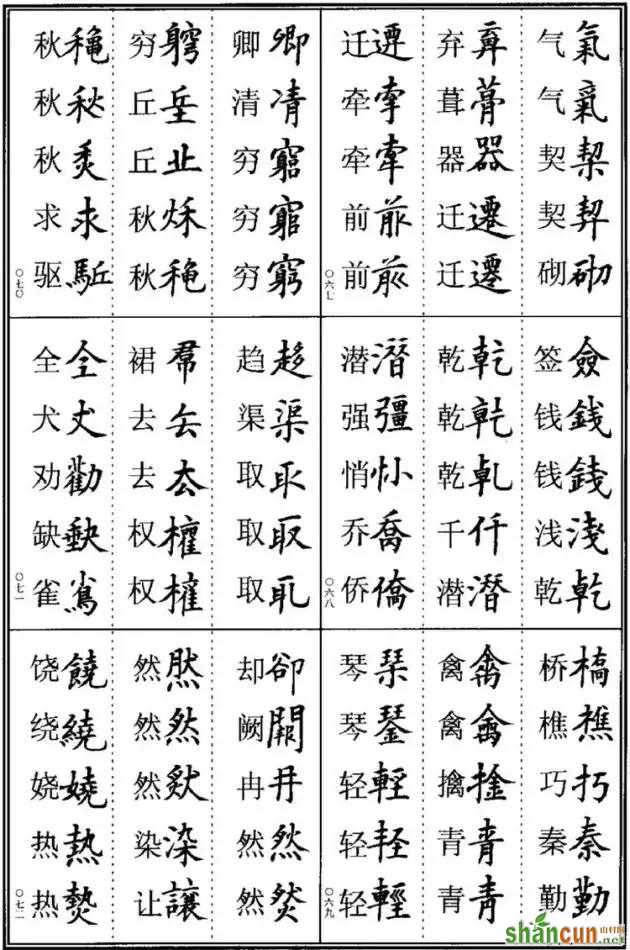 气氣 气氣 契栔 契契 砌砌
弃弃 葺葺 器器 迁遷 迁遷
迁遷 牵牵 牵牽 前前 前前
〇六七
签僉 钱錢 钱錢 浅淺 乾乾
乾乾 乾乾 乾乹 千仟 潜潛
潜潛 强彊 悄忄 乔喬 侨僑
〇六八
桥槗 樵樵 巧巧 秦秦 勤勤
禽禽 禽禽 擒捦 青青 青青
琴琹 琴琴 轻輕 轻軽 轻輕
〇六九
卿卿 清凊 穷窮 穷窮 穷窮
穷竆 丘垄 丘丠 秋秌 秋穐
秋穐 秋秋 秋秋 求求 驱駈
〇七〇
趋趍 渠渠 取取 取取 取取
裙帬 去厺 去去 权權 权權
全仝 犬犬 劝勸 缺缺 雀雀
〇七一
却卻 阙闕 冉冉 然然 然然
然然 然然 然然 染染 让讓
饶饒 绕繞 娆嬈 热熱 热熱
〇七二
shancun
山村网